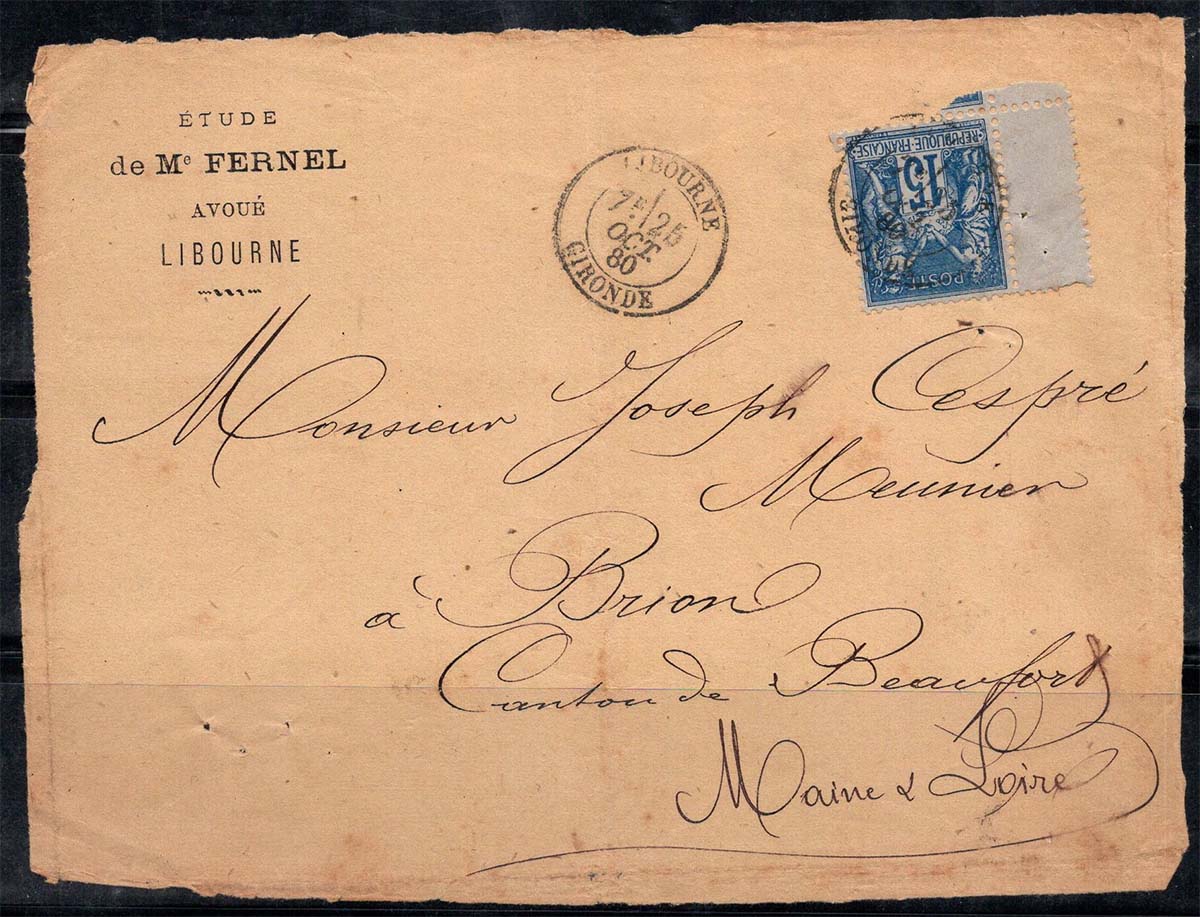 ÉTUDE
de Me FERNEL
AVOUÉ
LIBOURNE
LIBOURNE
7E/25
OCT.
80
GIRONDE
POSTE
15
REPUBLIQUE FRANÇAISE
Monsieur Joseph Cespré
Meunier
à Brion
Canton de Beaufort
Maine & Loire